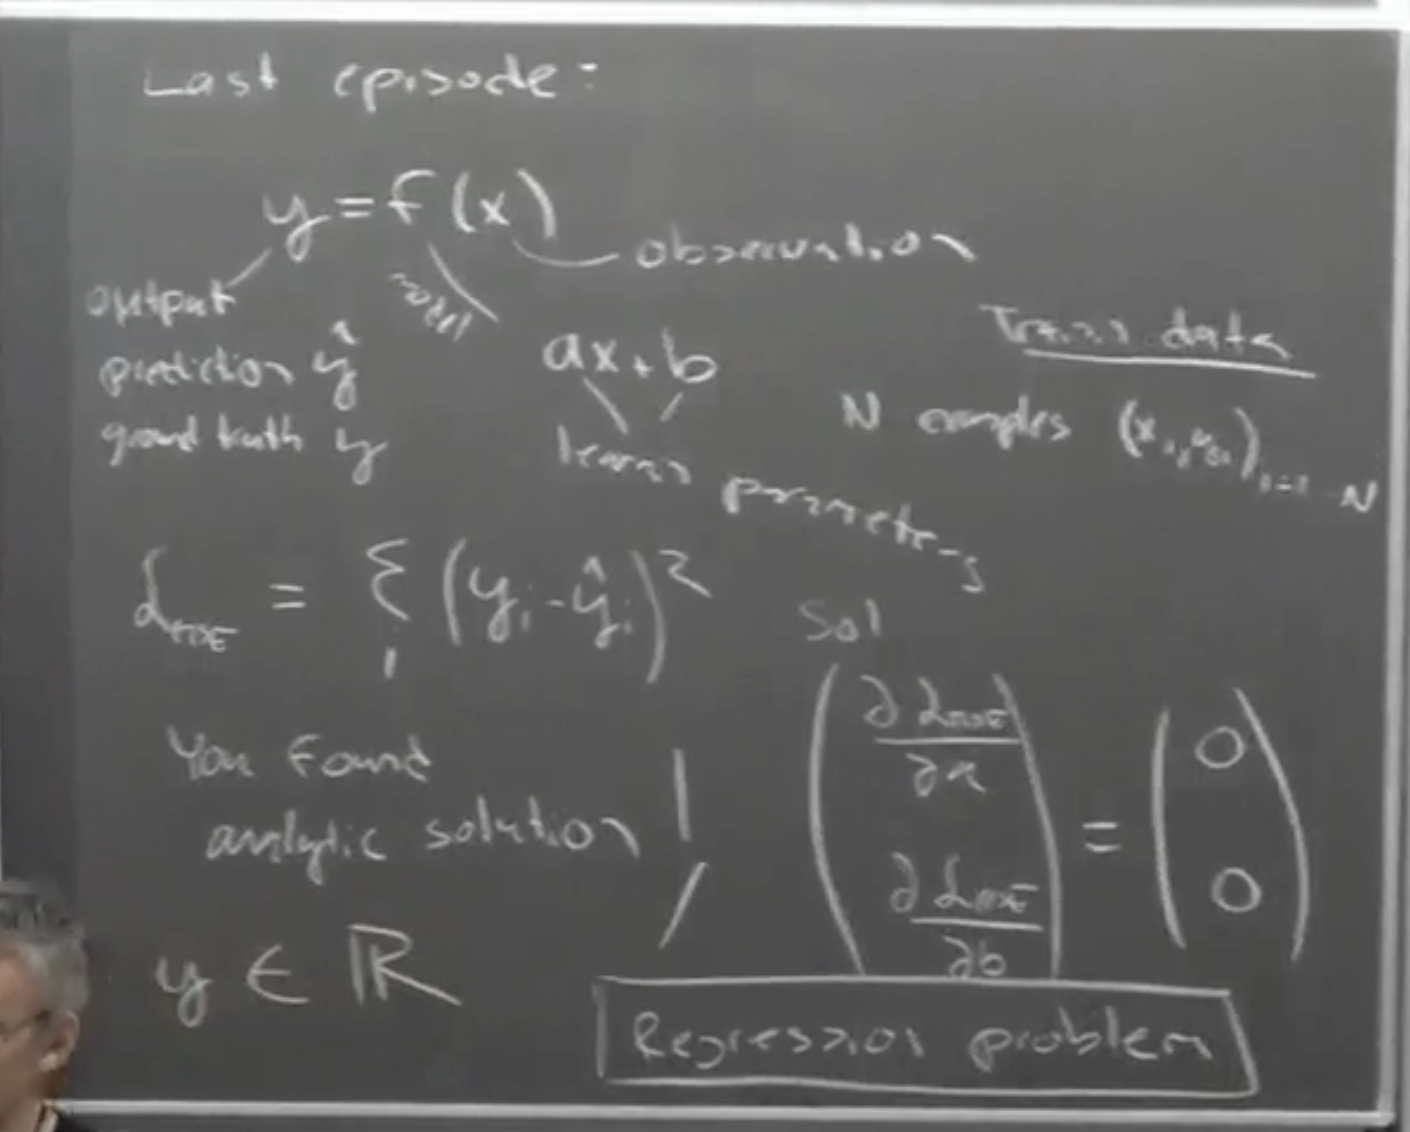 Last episode:
y = f(x)
observation
output
prediction ŷ
ground truth y
ax + b
learn parameters
Train data
N examples (x_i, y_i)_{i=1...N}
ℒ_MSE = Σ_i (y_i - ŷ_i)²
You found
analytic solution !
Sol
(∂ℒ_MSE/∂a
∂ℒ_MSE/∂b) = (0
0)
y ∈ ℝ
Regression problem